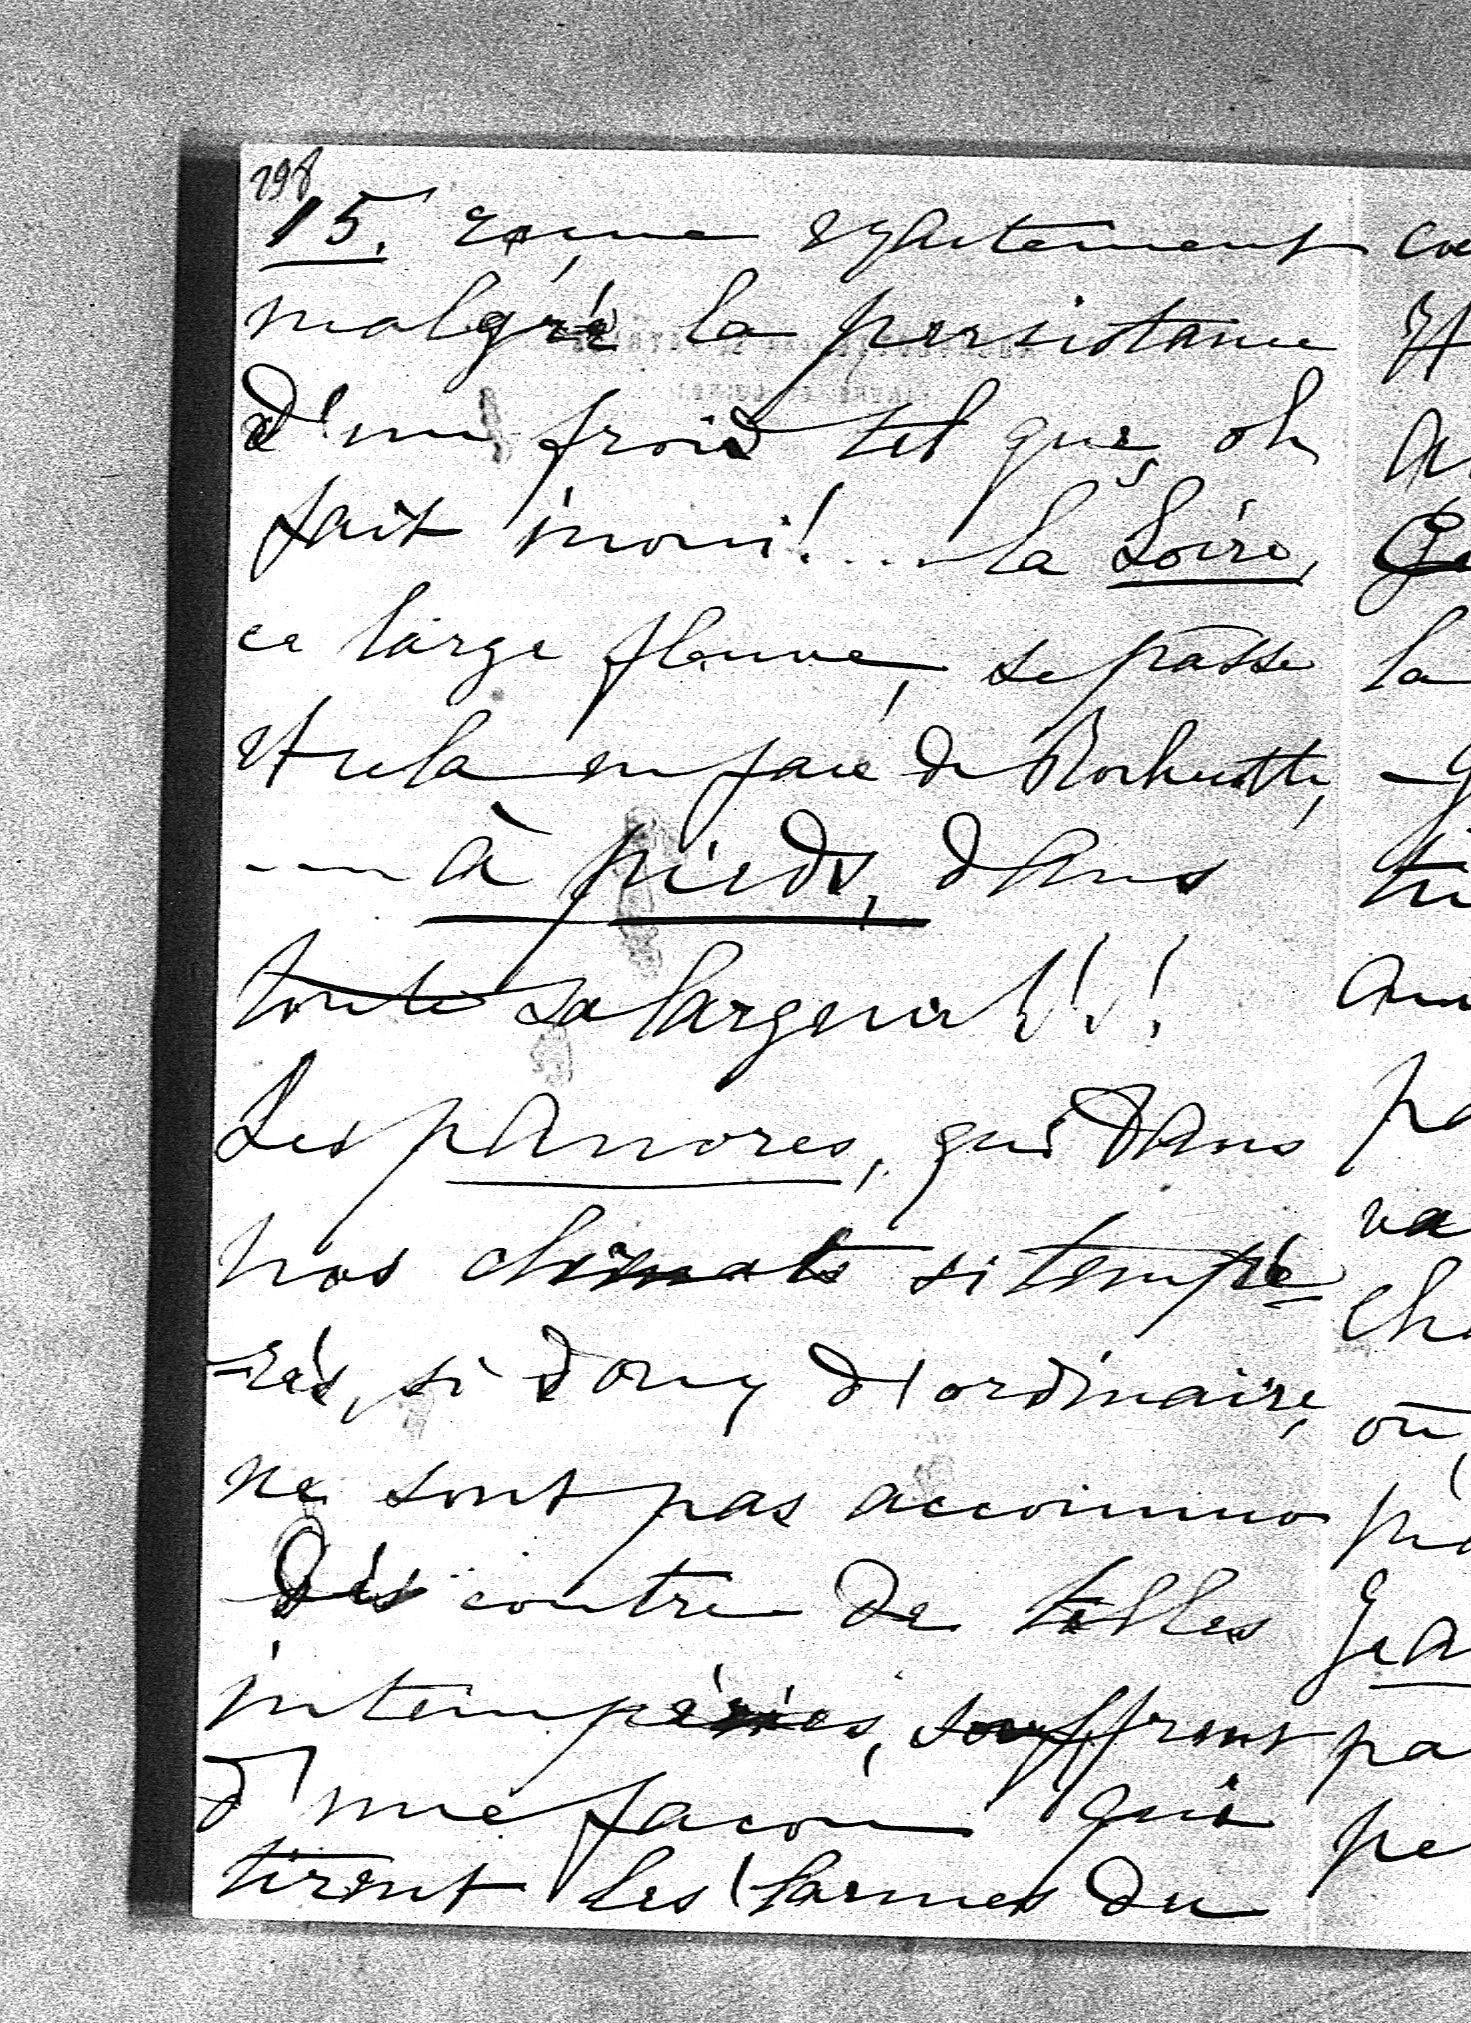 298
15. exactement
malgré la persistance
d'un froid tel que, oh
fait inoui!... la Loire,
ce large fleuve, se passe
et cela en face de Rochecotte,
---- à pieds, dans
toute sa largeur!!!
Les pauvres, qui dans
nos climats si tempé-
-rés, si doux d'ordinaire,
ne sont pas accommo
dés contre de telles
intempéries, souffrent
d'une façon qui
tirent les larmes du